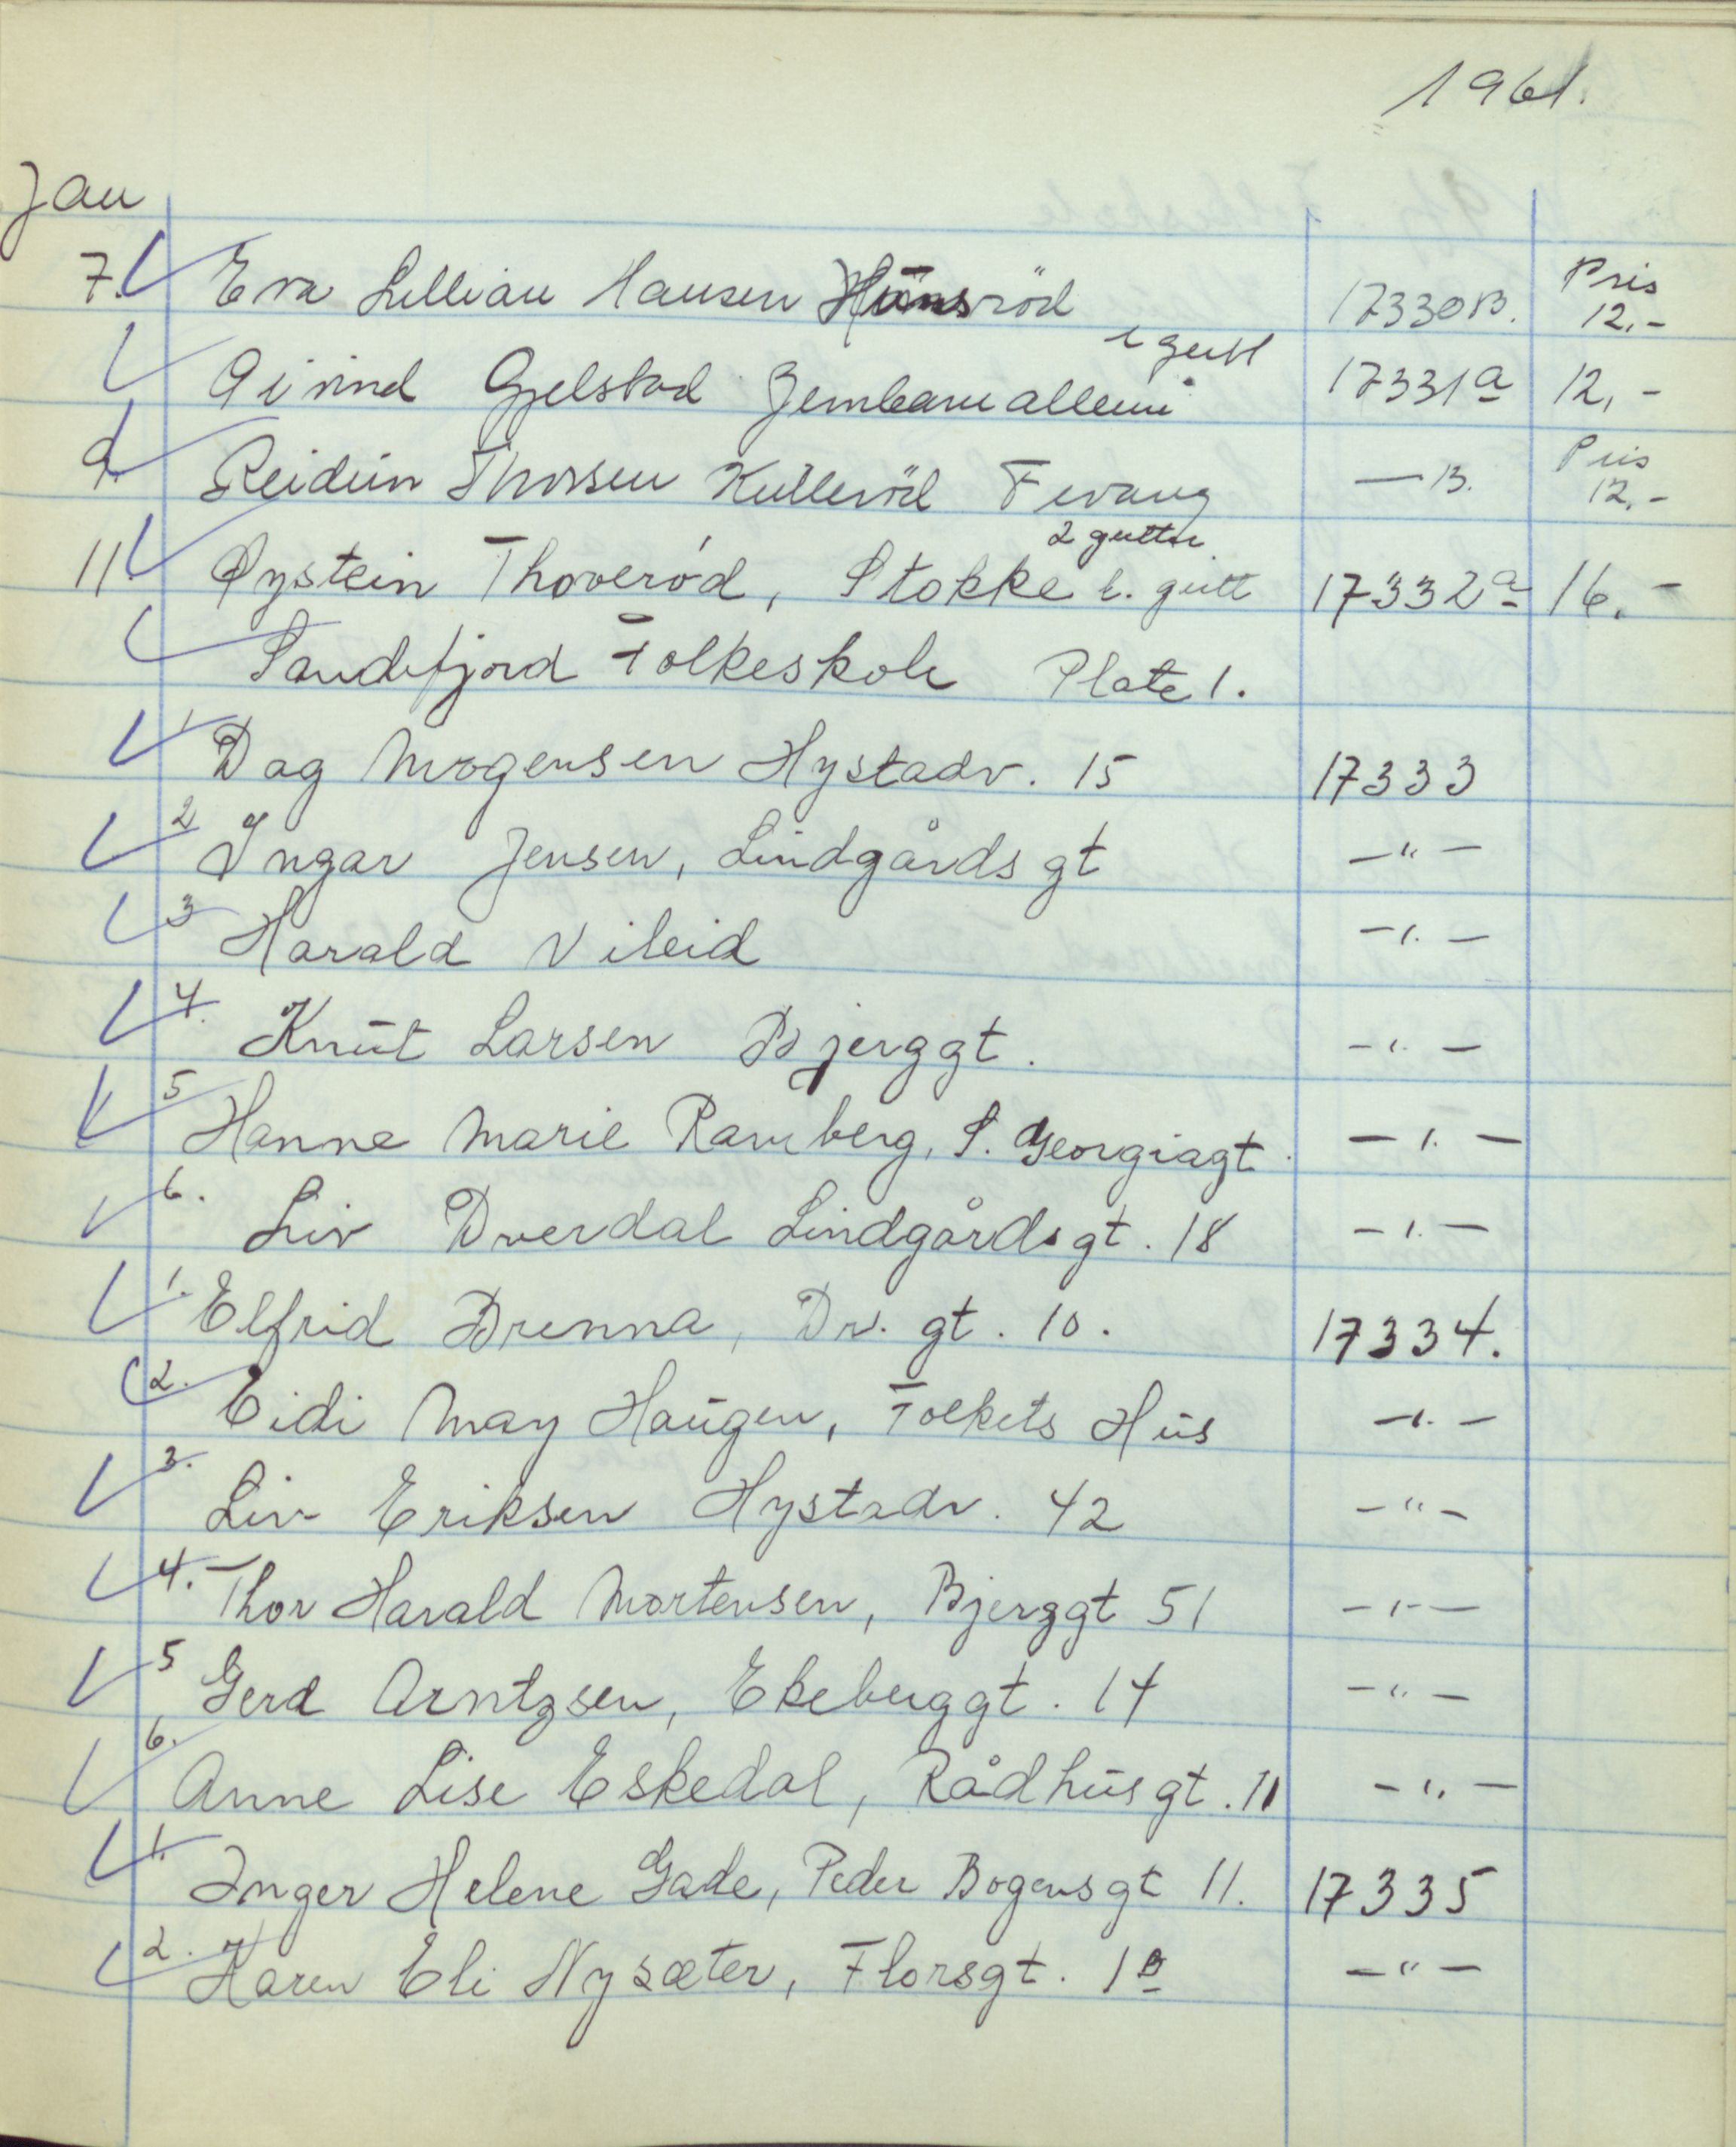 1961.
Jan
7. Eva Lillian Hansen Hünsröd 17330B. Pris 12,-
1 gutt
Øivind Gjelstad Jernbanealleen 17331a 12,-
9. Reidün Thorsen Küllerød Fevang — B. Pris 12,-
2 gutter
11. Øystein Thoverød, Stokke 1. gütt 17332a 16.-
Sandefjord Folkeskole Plate 1.
1 Dag Mogensen Hystadv. 15 17333
2 Ingar Jensen, Lindgårds gt — " —
3 Harald Vileid — " —
4. Knüt Larsen Bjerggt. — " —
5 Hanne Marie Ramberg, S. Georgiagt. — " —
6. Liv Dverdal Lindgårdsgt. 18 — " —
1. Elfrid Brenna, Dr. gt. 10. 17334.
2. Eidi May Haügen, Folkets Hüs — " —
3. Liv Eriksen Hystadv. 42 — " —
4. Thor Harald Mortensen, Bjerggt 51 — " —
5 Gerd Arntzsen, Ekeberggt. 14 — " —
6. Anne Lise Eskedal, Rådhüsgt. 11 — " —
1. Inger Helene Gade, Peder Bogensgt 11. 17335
2. Karen Eli Nysæter, Florsgt. 1B — " —